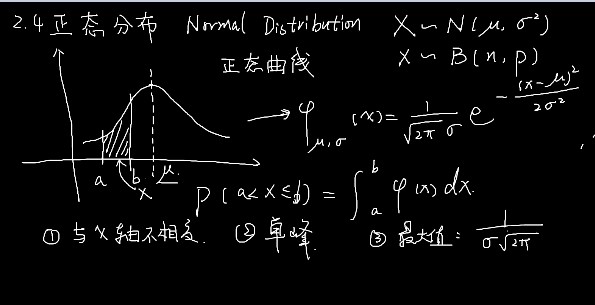 2.4 正态分布 Normal Distribution X ~ N(μ, σ²)
正态曲线 X ~ B(n, p)
φμ,σ(x) = 1/(√2π σ) e^(-(x-μ)²/2σ²)
a b μ
x
P(a<X≤b) = ∫ₐᵇ φ(x)dx.
① 与X轴不相交. ② 单峰. ③ 最大值: 1/(σ√2π)